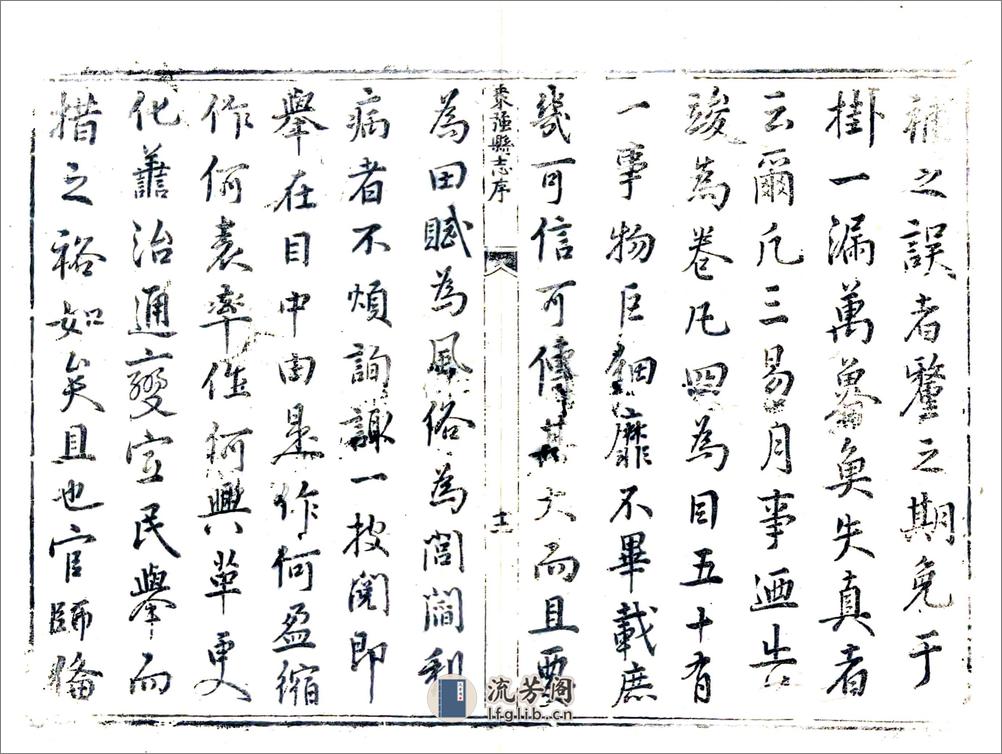 補之誤者釐之期免于
掛一漏萬摹奐失真者
云爾凡三易月事迺告
竣為卷凡四為目五十有
一事物巨細靡不畢載庶
幾可信可傳其大而且要
棗强縣志序
十二
為田賦為風俗為閭閻利
病者不煩詢諏一披閱即
舉在目中由是作何盈縮
作何表率作何興革更
化善治通變宜民舉而
措之裕如矣且也官師偹
流芳阁
lfglib.cn